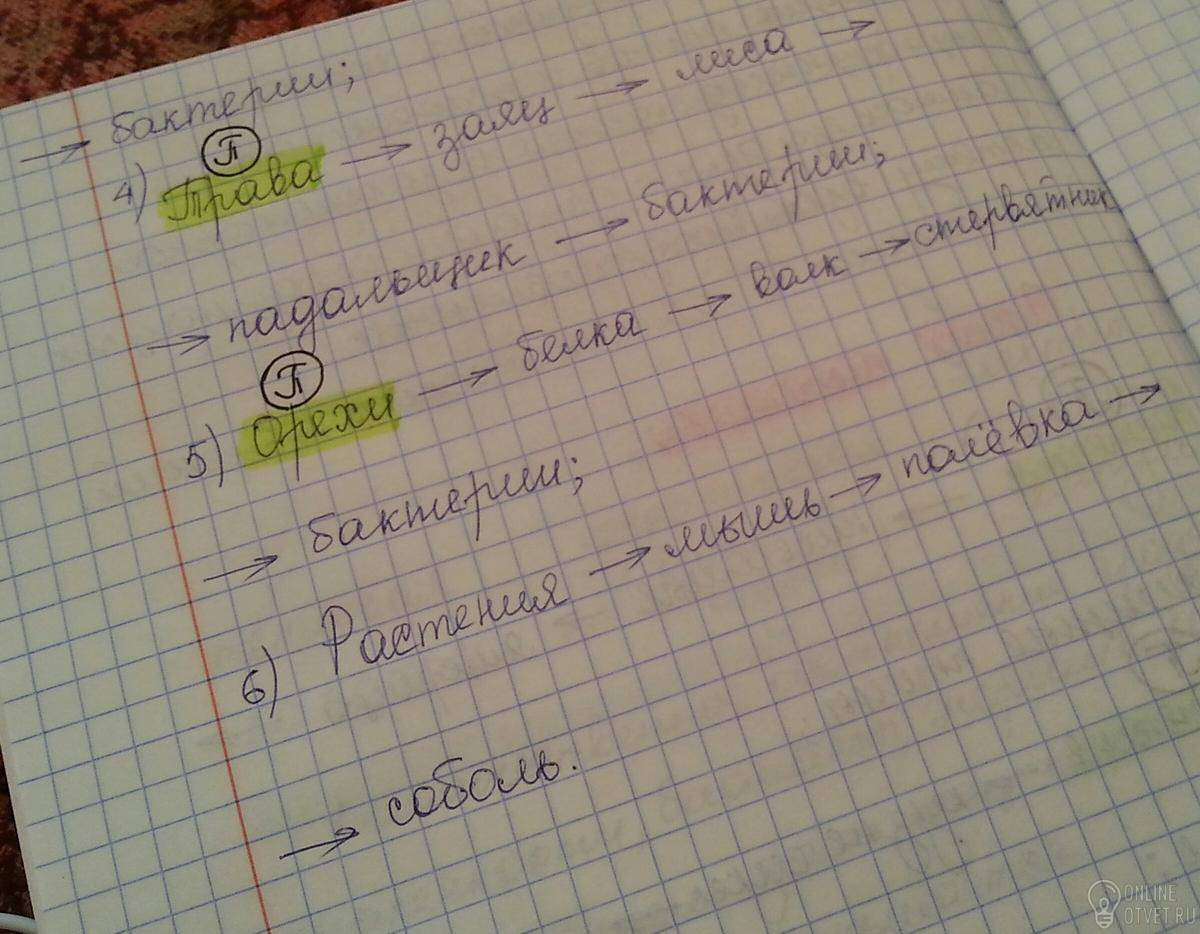 → бактерии;
П
4) Трава → заяц → лиса →
→ падальщик → бактерии;
П
5) Орехи → белка → волк → стервятник
→ бактерии;
6) Растения → мышь → полёвка →
→ соболь.
ONLINE
OTVET.RU